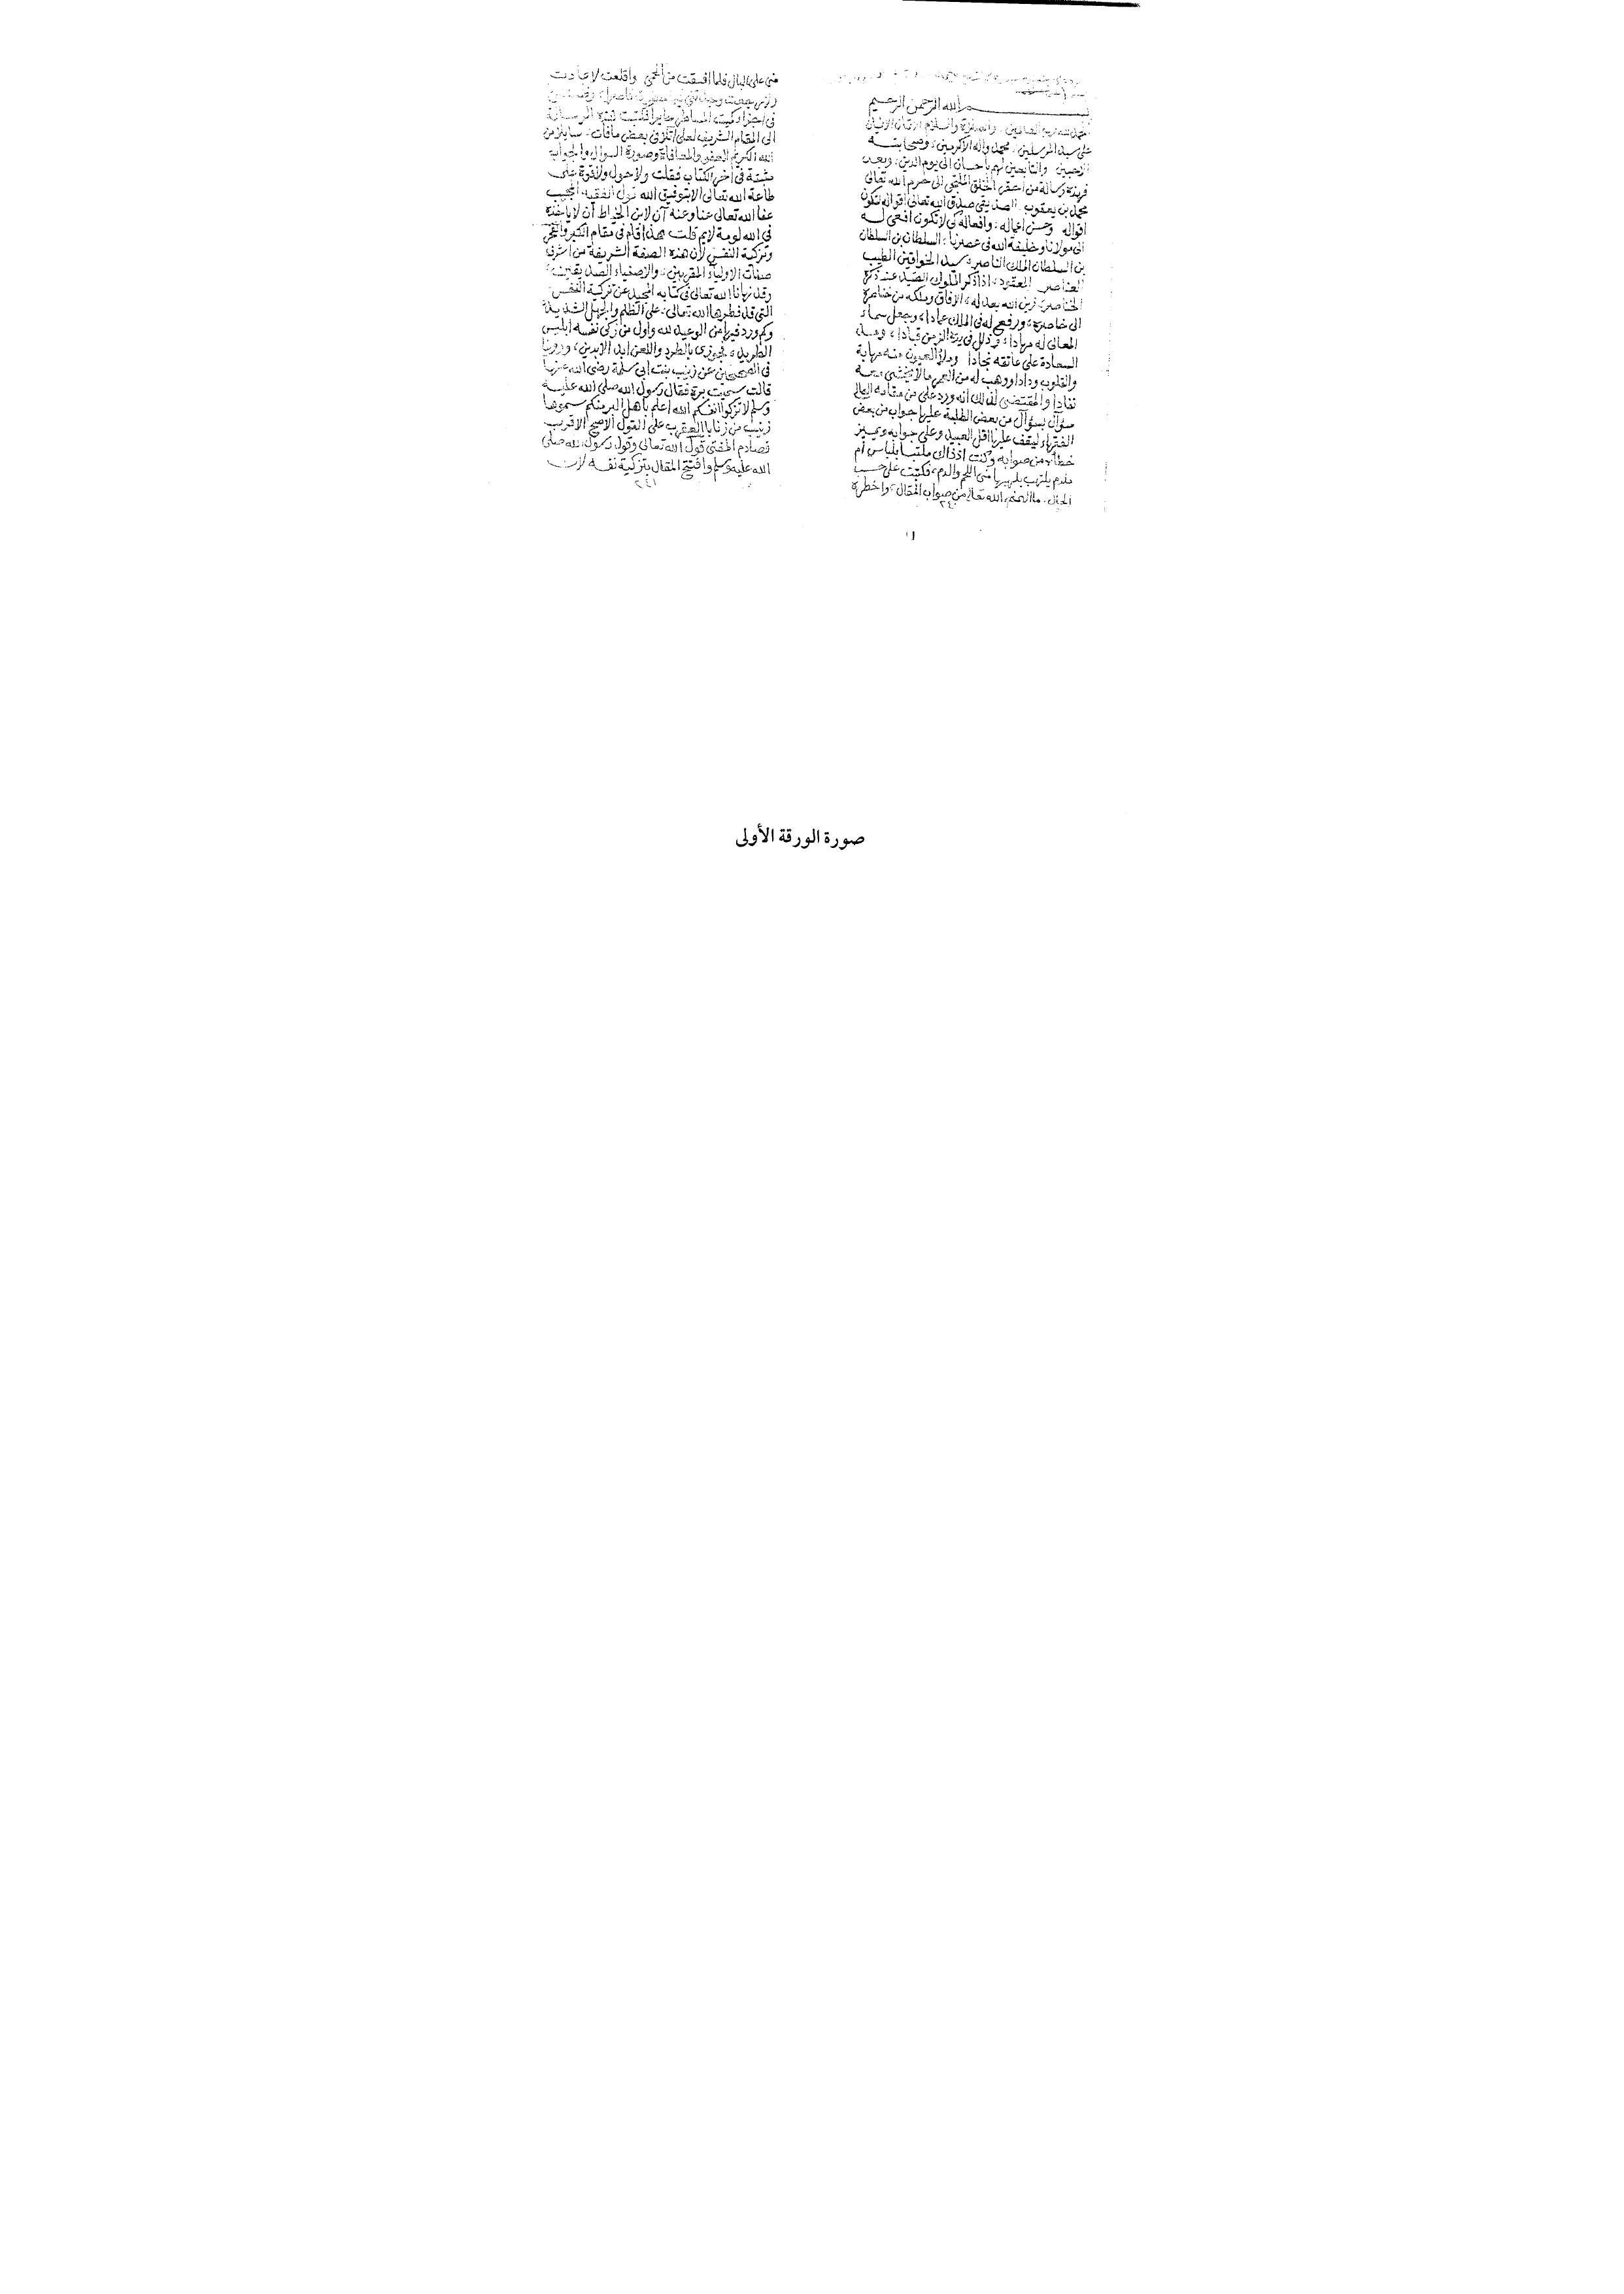 بسم الله الرحمن الرحيم
على سيد المرسلين محمد واله الاكرمين وصحابته
والتابعين لهم باحسان الى يوم الدين وبعد
فهذه رسالة من احقر الخلق الملتجى الى حرم الله تعالى
محمد بن يعقوب الصديقى صدق الله تعالى اقواله لتكون
اقواله وحسن افعاله كى لا تكون افعى له
الى مولانا وخليفة الله فى عصرنا السلطان بن السلطان
بن السلطان الملك الناصر سيد الخواقين الطيب
العناصر اذا ذكر الملوك الصيد عند ذكره
الخناصر زين الله بعدله الافاق وملكه من خناصره
الى خاصره ورفع له فى الملك عمادا وجعل سماء
المعالى له مهادا وذلل فى يده الزمن قيادا
السعادة على عاتقه نجادا وملأ العيون منه مهابة
والقلوب ودادا ووهب له من العمر ما لا يخشى معه
نفادا والمقتضى لذلك انه ورد على من مقامه العالى
سؤال من بعض الطلبة عليها جواب من بعض
الفقهاء ليقف عليها اقل العبيد وعلى جوابه ويميز
خطأه من صوابه وكنت اذ ذاك ملتبسا بلباس أم
ملدم يلتهب بلهيبها منى اللحم والدم فكتبت على حسب
الحال ما الهمنى الله تعالى من صواب المقال واخطره
٢٤٠
منى على البال فلما افقت من الحمى واقلعت
فكتبت هذه الرسالة
الى المقام الشريف لعلى اتلافى بعض ما فات سايلا من
الله الكريم العفو والمعافاة وصورة السوال والجواب
مثبتة فى اخر الكتاب فقلت ولا حول ولا قوة على
طاعة الله تعالى الا بتوفيق الله قول الفقيه المجيب
عفا الله تعالى عنا وعنه آن لابن الخياط أن لا ياخذه
فى الله لومة لايم قلت هذا قام فى مقام الكبر والفخر
وتزكية النفس لأن هذه الصفة الشريفة من اشرف
صفات الاولياء المقربين والاصفياء الصديقين
وقد نهانا الله تعالى فى كتابه المجيد عن تزكية النفس
التى قد فطرها الله تعالى على الظلم والجهل الشديد
وكم ورد فيها من الوعيد لله واول من زكى نفسه ابليس
الطريد فجوزى بالطرد واللعن ابد الابدين وروينا
فى الصحيحين عن زينب بنت ابى سلمة رضى الله عنها
قالت سميت برة فقال رسول الله صلى الله عليه
وسلم لا تزكوا انفسكم الله اعلم باهل البر منكم سموها
زينب من زنابا العقرب على القول الاصح الاقرب
فصادم المفتى قول الله تعالى وقول رسول الله صلى
الله عليه وسلم وافتتح المقال بتزكية نفسه
٢٤١
صورة الورقة الأولى